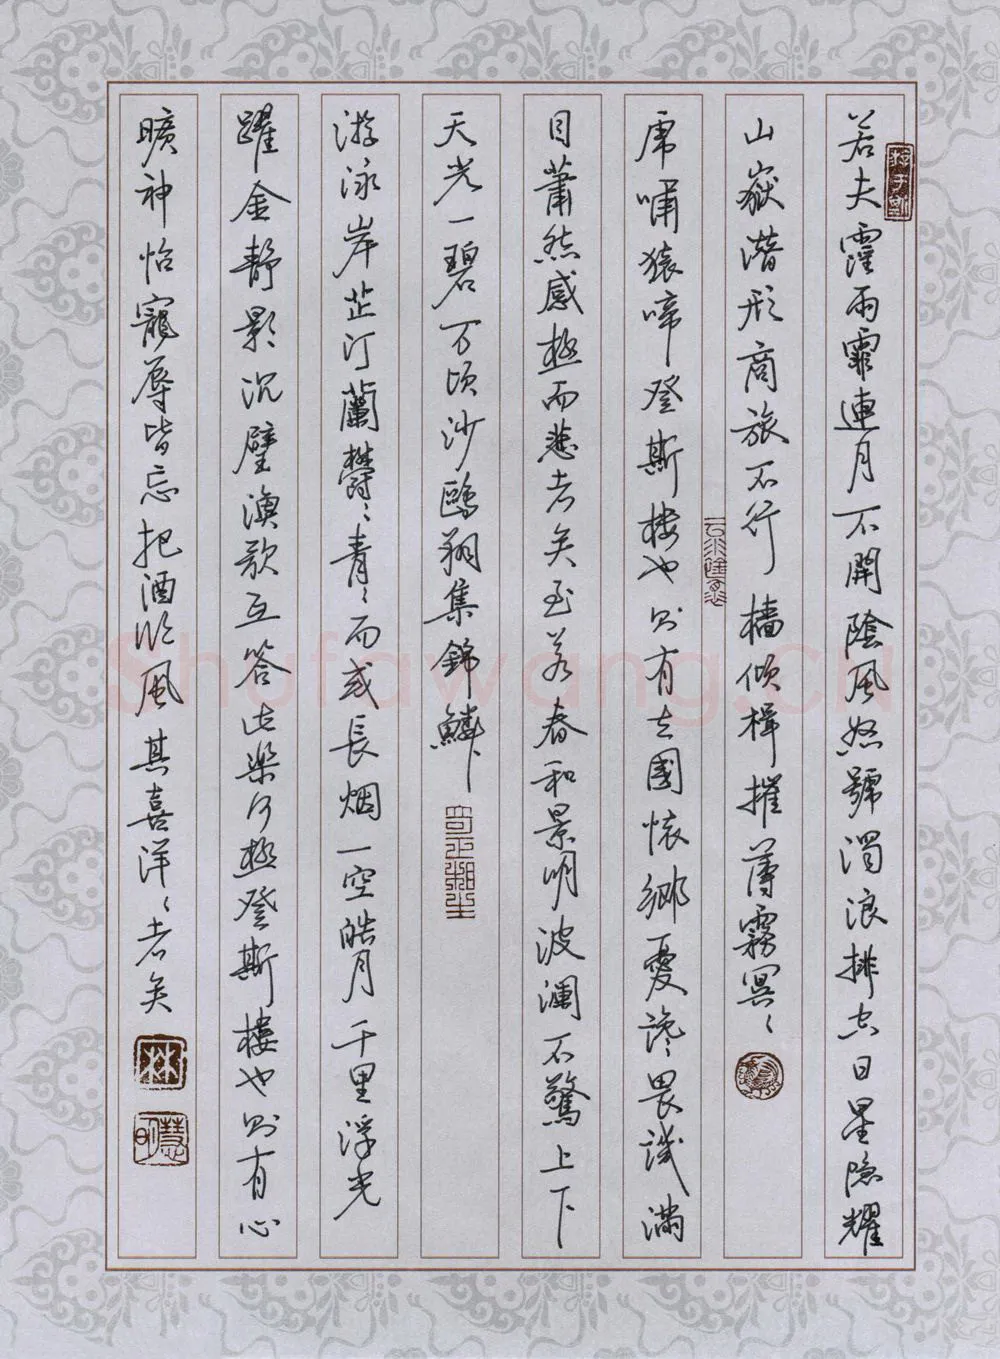 若夫霪雨霏連月不開陰風怒號濁浪排空日星隱耀
山嶽潛形商旅不行檣傾楫摧薄霧冥〻
虎嘯猿啼登斯樓也則有去國懷鄉憂讒畏譏滿
目蕭然感極而悲者矣至若春和景明波瀾不驚上下
天光一碧万頃沙鷗翔集錦鱗
游泳岸芷汀蘭鬱〻青〻而或長烟一空皓月千里浮光
躍金靜影沉璧漁歌互答此樂何極登斯樓也則有心
曠神怡寵辱皆忘把酒临風其喜洋〻者矣
林
慧明
Shufawang.CN